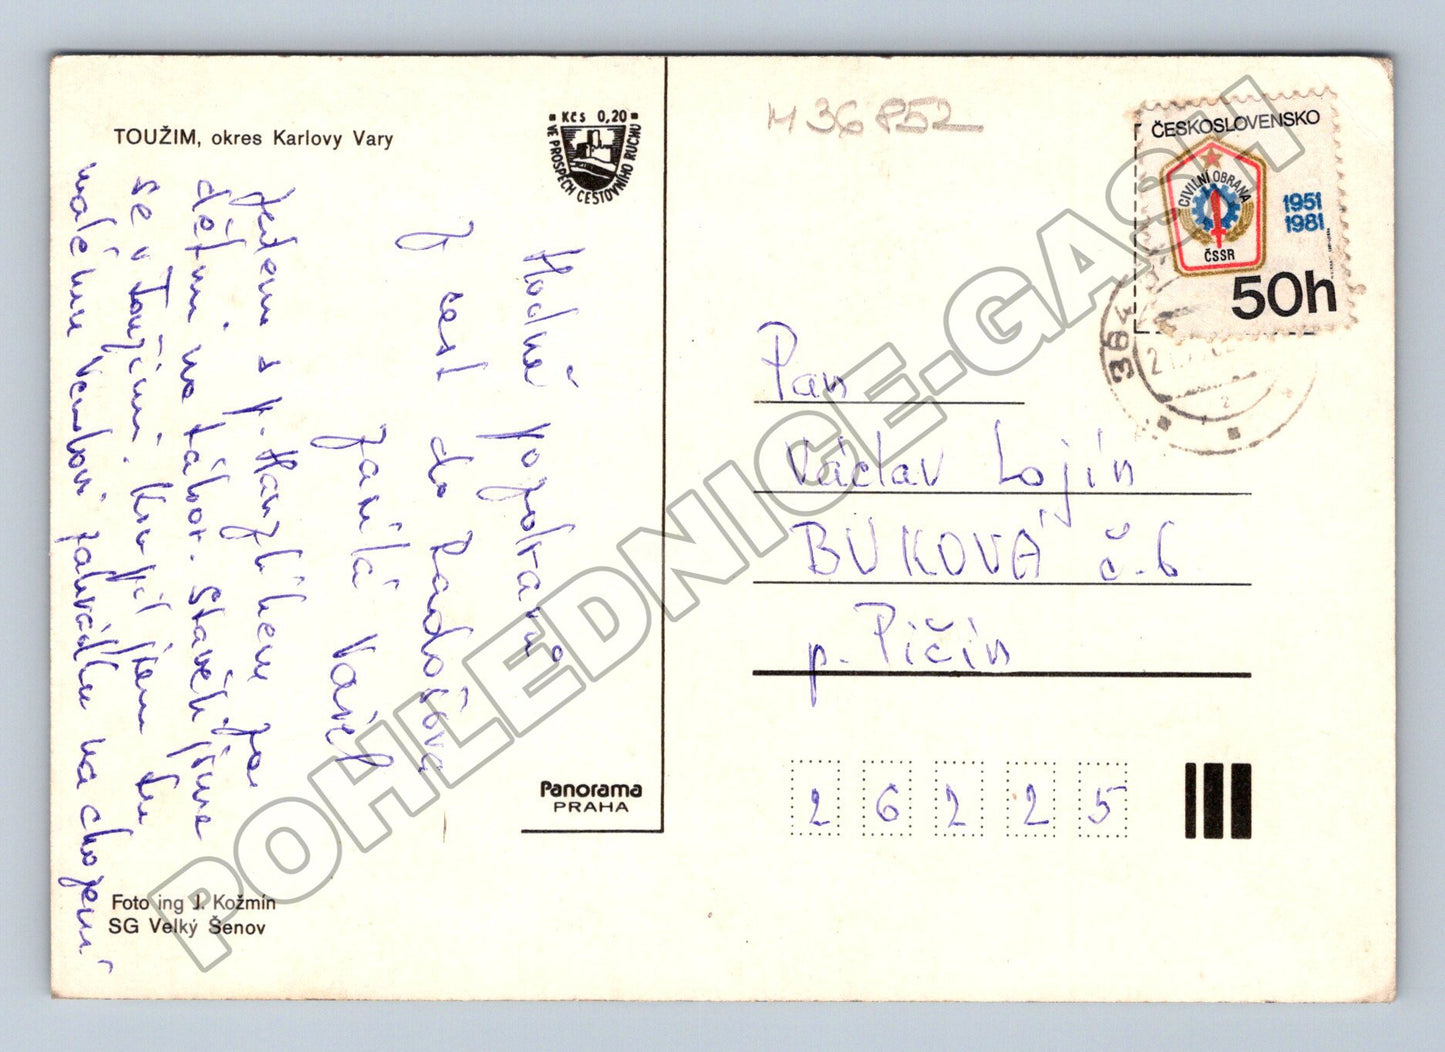 TOUŽIM, okres Karlovy Vary
Kčs 0,20
VE PROSPĚCH CESTOVNÍHO RUCHU
M 36 852
ČESKOSLOVENSKO
CIVILNÍ OBRANA
ČSSR
1951
1981
50h
364
Hodně pozdravů
z cest do Radošova
zasílá Vašek
Jedem s p. Hanzlíkem za
dětmi na tábor. Stavěli jsme
se v Toužimi. Koupil jsem tu
malému Venduovi zahrádku na chození
Panorama
PRAHA
Foto ing J. Kožmín
SG Velký Šenov
Pan
Václav Lojín
BUKOVÁ č.6
p. Pičín
2 6 2 2 5
POHLEDNICE-GASH